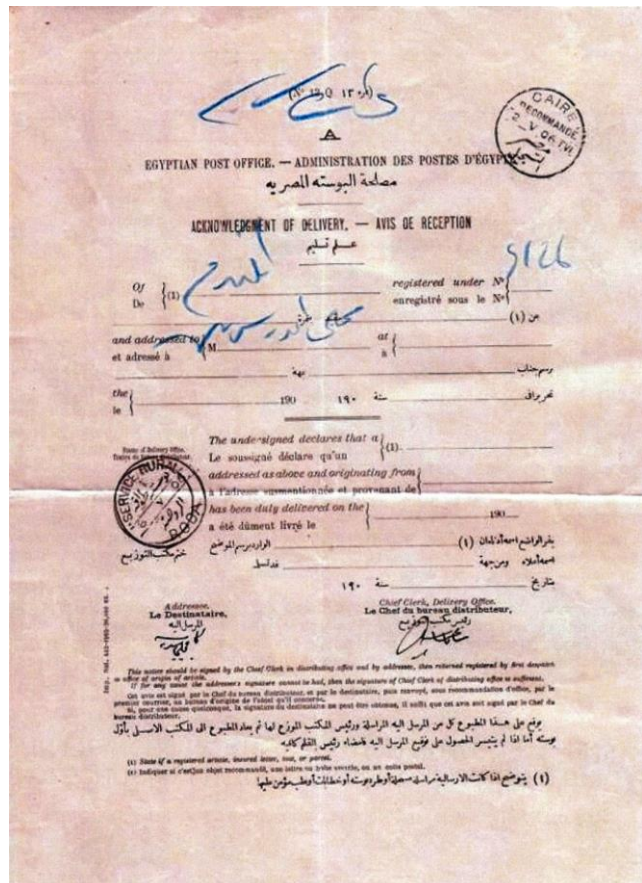 (Nº 13 Q ١٣ نمرة)
A
CAIRE
RECOMMANDÉ
EGYPTIAN POST OFFICE. — ADMINISTRATION DES POSTES D'ÉGYPTE
مصلحة البوسته المصريه
ACKNOWLEDGMENT OF DELIVERY. — AVIS DE RECEPTION
علم تسليم
Of (1) registered under Nº 9126
De enregistré sous le Nº
عن (١)
and addressed to M at
et adressé à à
برسم جناب بجهة
the 190 ١٩٠ سنة تحريراً فى
le
The unde-signed declares that a (1)
Le soussigné déclare qu'un
addressed as above and originating from
à l'adresse susmentionnée et provenant de
has been duly delivered on the 190
a été dûment livré le
SERVICE RURAL
يقر الواضع اسمه أدناه بان (١) الوارد برسم الموضح
اسمه أعلاه ومن جهة قد تسلم
ختم مكتب التوزيع
بتاريخ سنة ١٩٠
Addressee. Chief Clerk, Delivery Office.
Le Destinataire, Le Chef du bureau distributeur,
المرسل اليه رئيس مكتب التوزيع
This notice should be signed by the Chief Clerk in distributing office and by addressee, then returned registered by first despatch
to office of origin of article.
If for any cause the addressee's signature cannot be had, then the signature of Chief Clerk of distributing office is sufficient.
Cet avis est signé par le Chef du bureau distributeur, et par le destinataire, puis renvoyé, sous recommandation d'office, par le
premier courrier, au bureau d'origine de l'objet qu'il concerne.
Si, pour une cause quelconque, la signature du destinataire ne peut être obtenue, il suffit que cet avis soit signé par le Chef du
bureau distributeur.
يوقع على هذا المطبوع كل من المرسل اليه المراسلة ورئيس المكتب الموزع لها ثم يعاد المطبوع الى المكتب الاصلى بأول
بوسته أما اذا لم يتيسر الحصول على توقيع المرسل اليه فامضاء رئيس القلم كافية
(1) State if a registered article, insured letter, box, or parcel.
(1) Indiquer si c'est un objet recommandé, une lettre ou boîte
(١) يتوضح اذا كانت الارسالية مراسلة مسجلة أو طرد بوسته أو خطابات أو علب مؤمن عليها